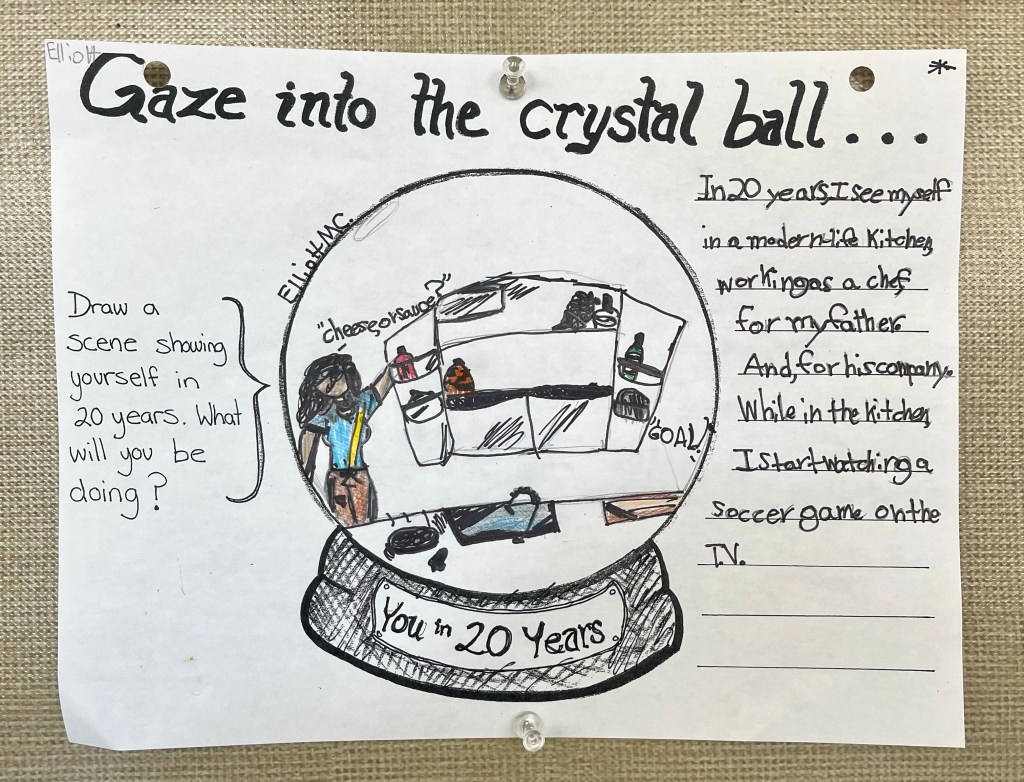 Elliott
*
Gaze into the crystal ball...
Draw a
scene showing
yourself in
20 years. What
will you be
doing?
Elliott MC.
"cheese, or sauce?"
"GOAL!"
You in 20 Years
In 20 years, I see myself
in a modern-life kitchen,
working as a chef
for my father.
And, for his company.
While in the kitchen,
I start watching a
soccer game on the
T.V.